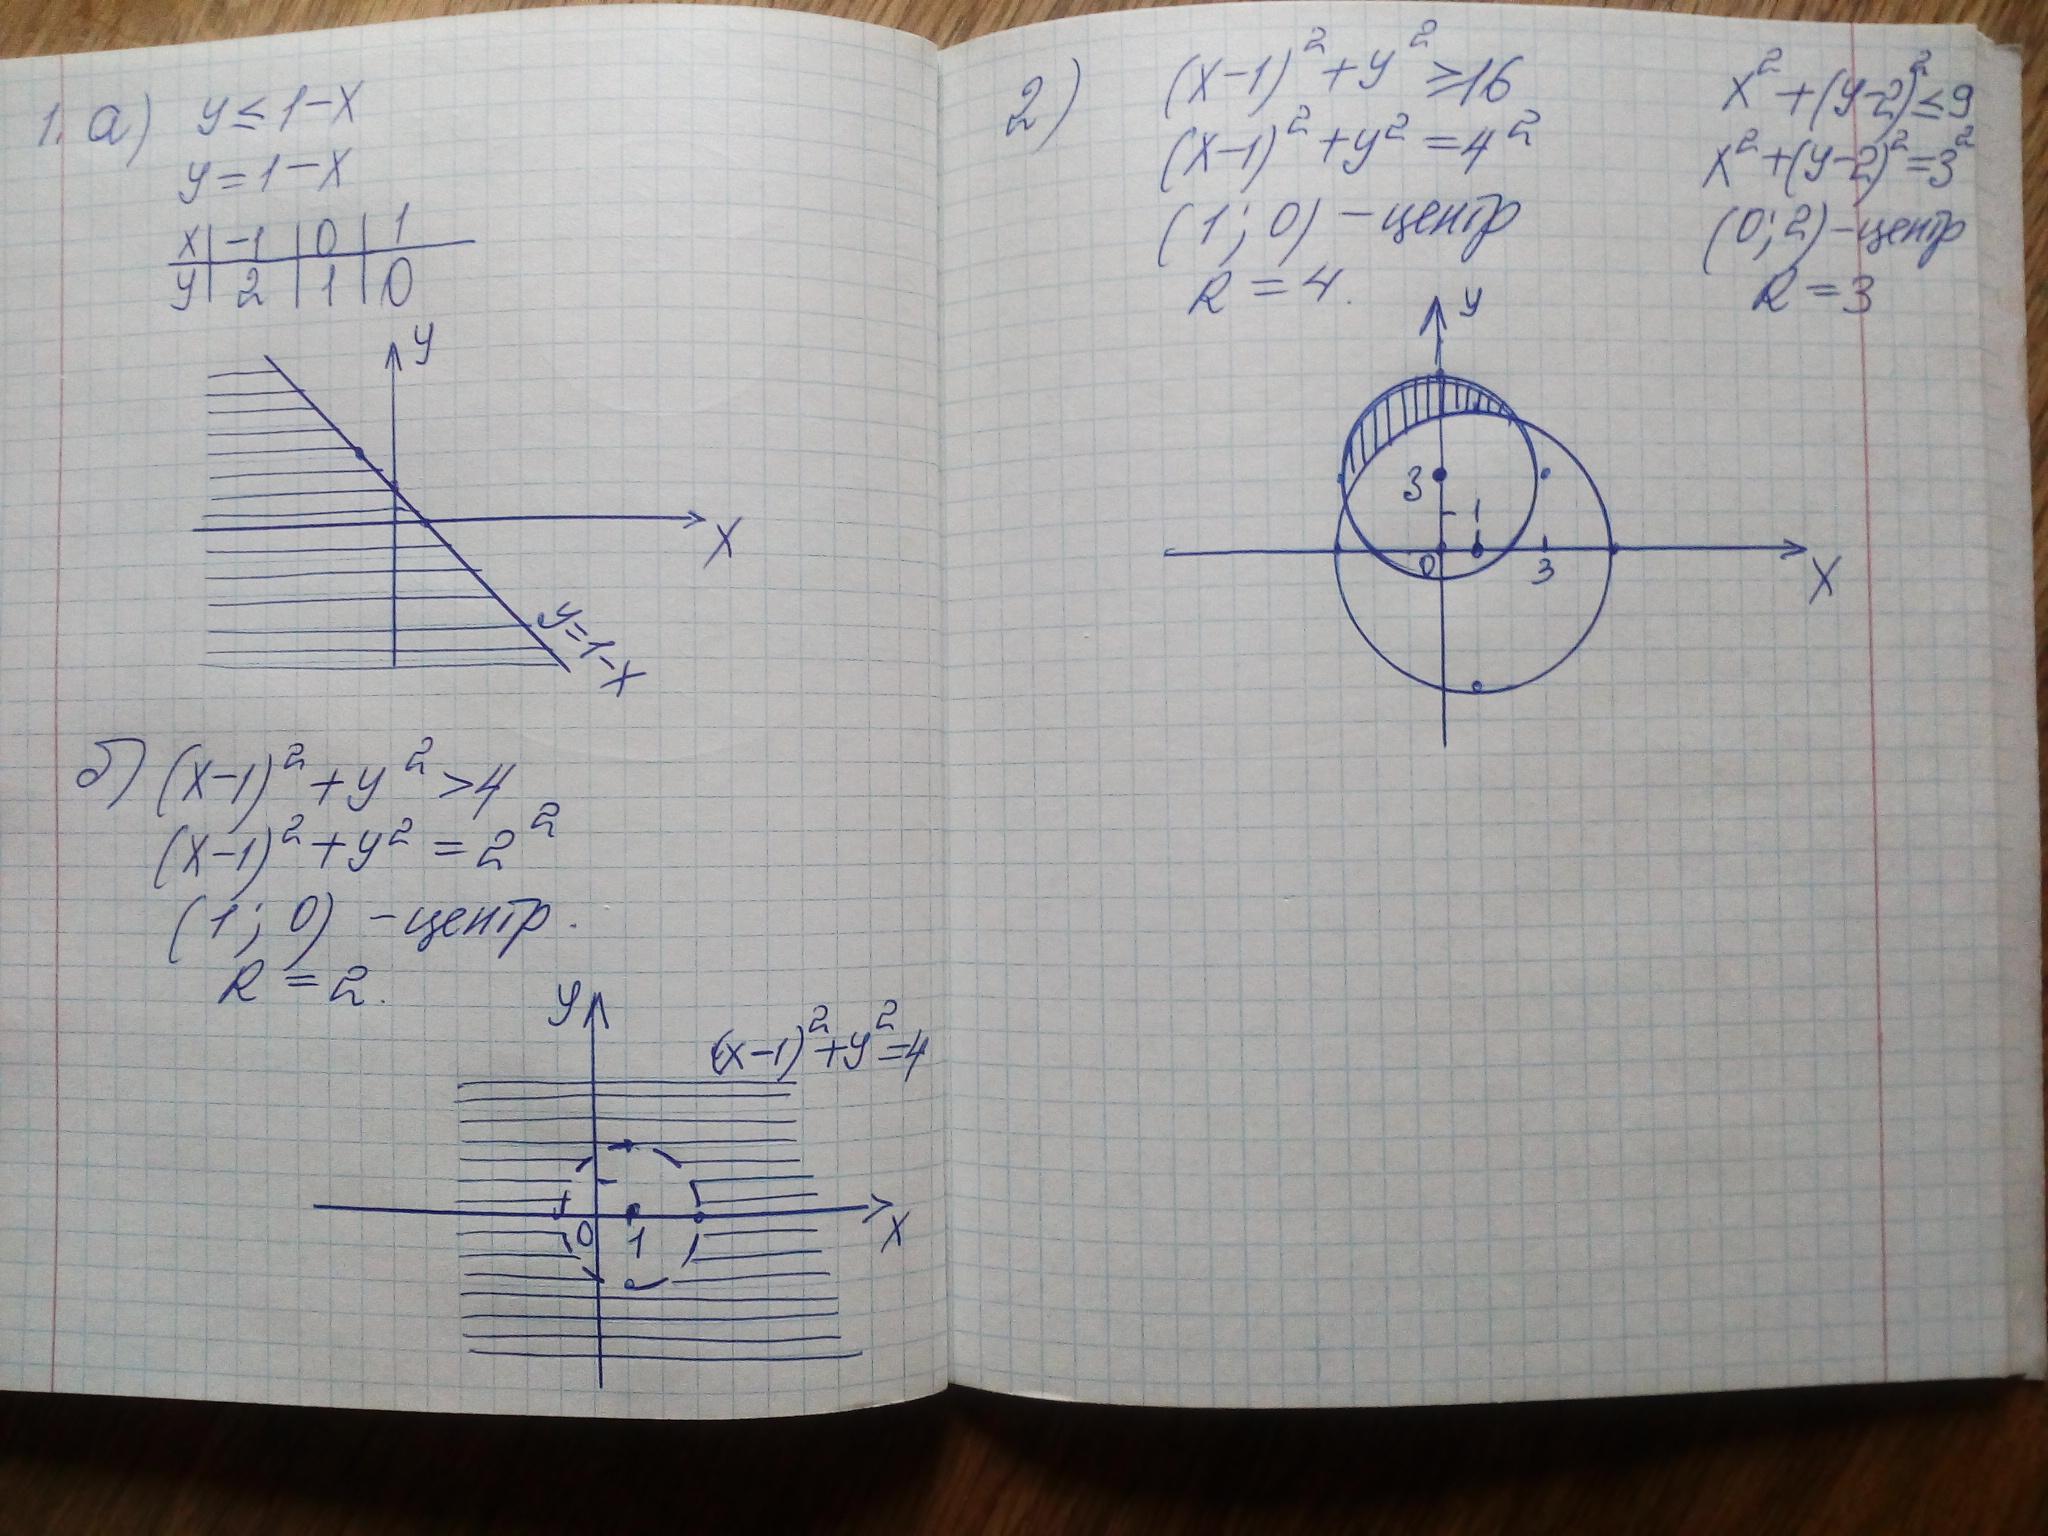 1. а) y ≤ 1-x
y = 1-x
x | -1 | 0 | 1
y | 2 | 1 | 0
y
x
y=1-x
б) (x-1)² + y² > 4
(x-1)² + y² = 2²
(1; 0) - центр.
R = 2.
y
(x-1)² + y² = 4
0 1
x
2) (x-1)² + y² ≥ 16
(x-1)² + y² = 4²
(1; 0) - центр
R = 4.
x² + (y-2)² ≤ 9
x² + (y-2)² = 3²
(0; 2) - центр
R = 3
y
3
1
0 3
x